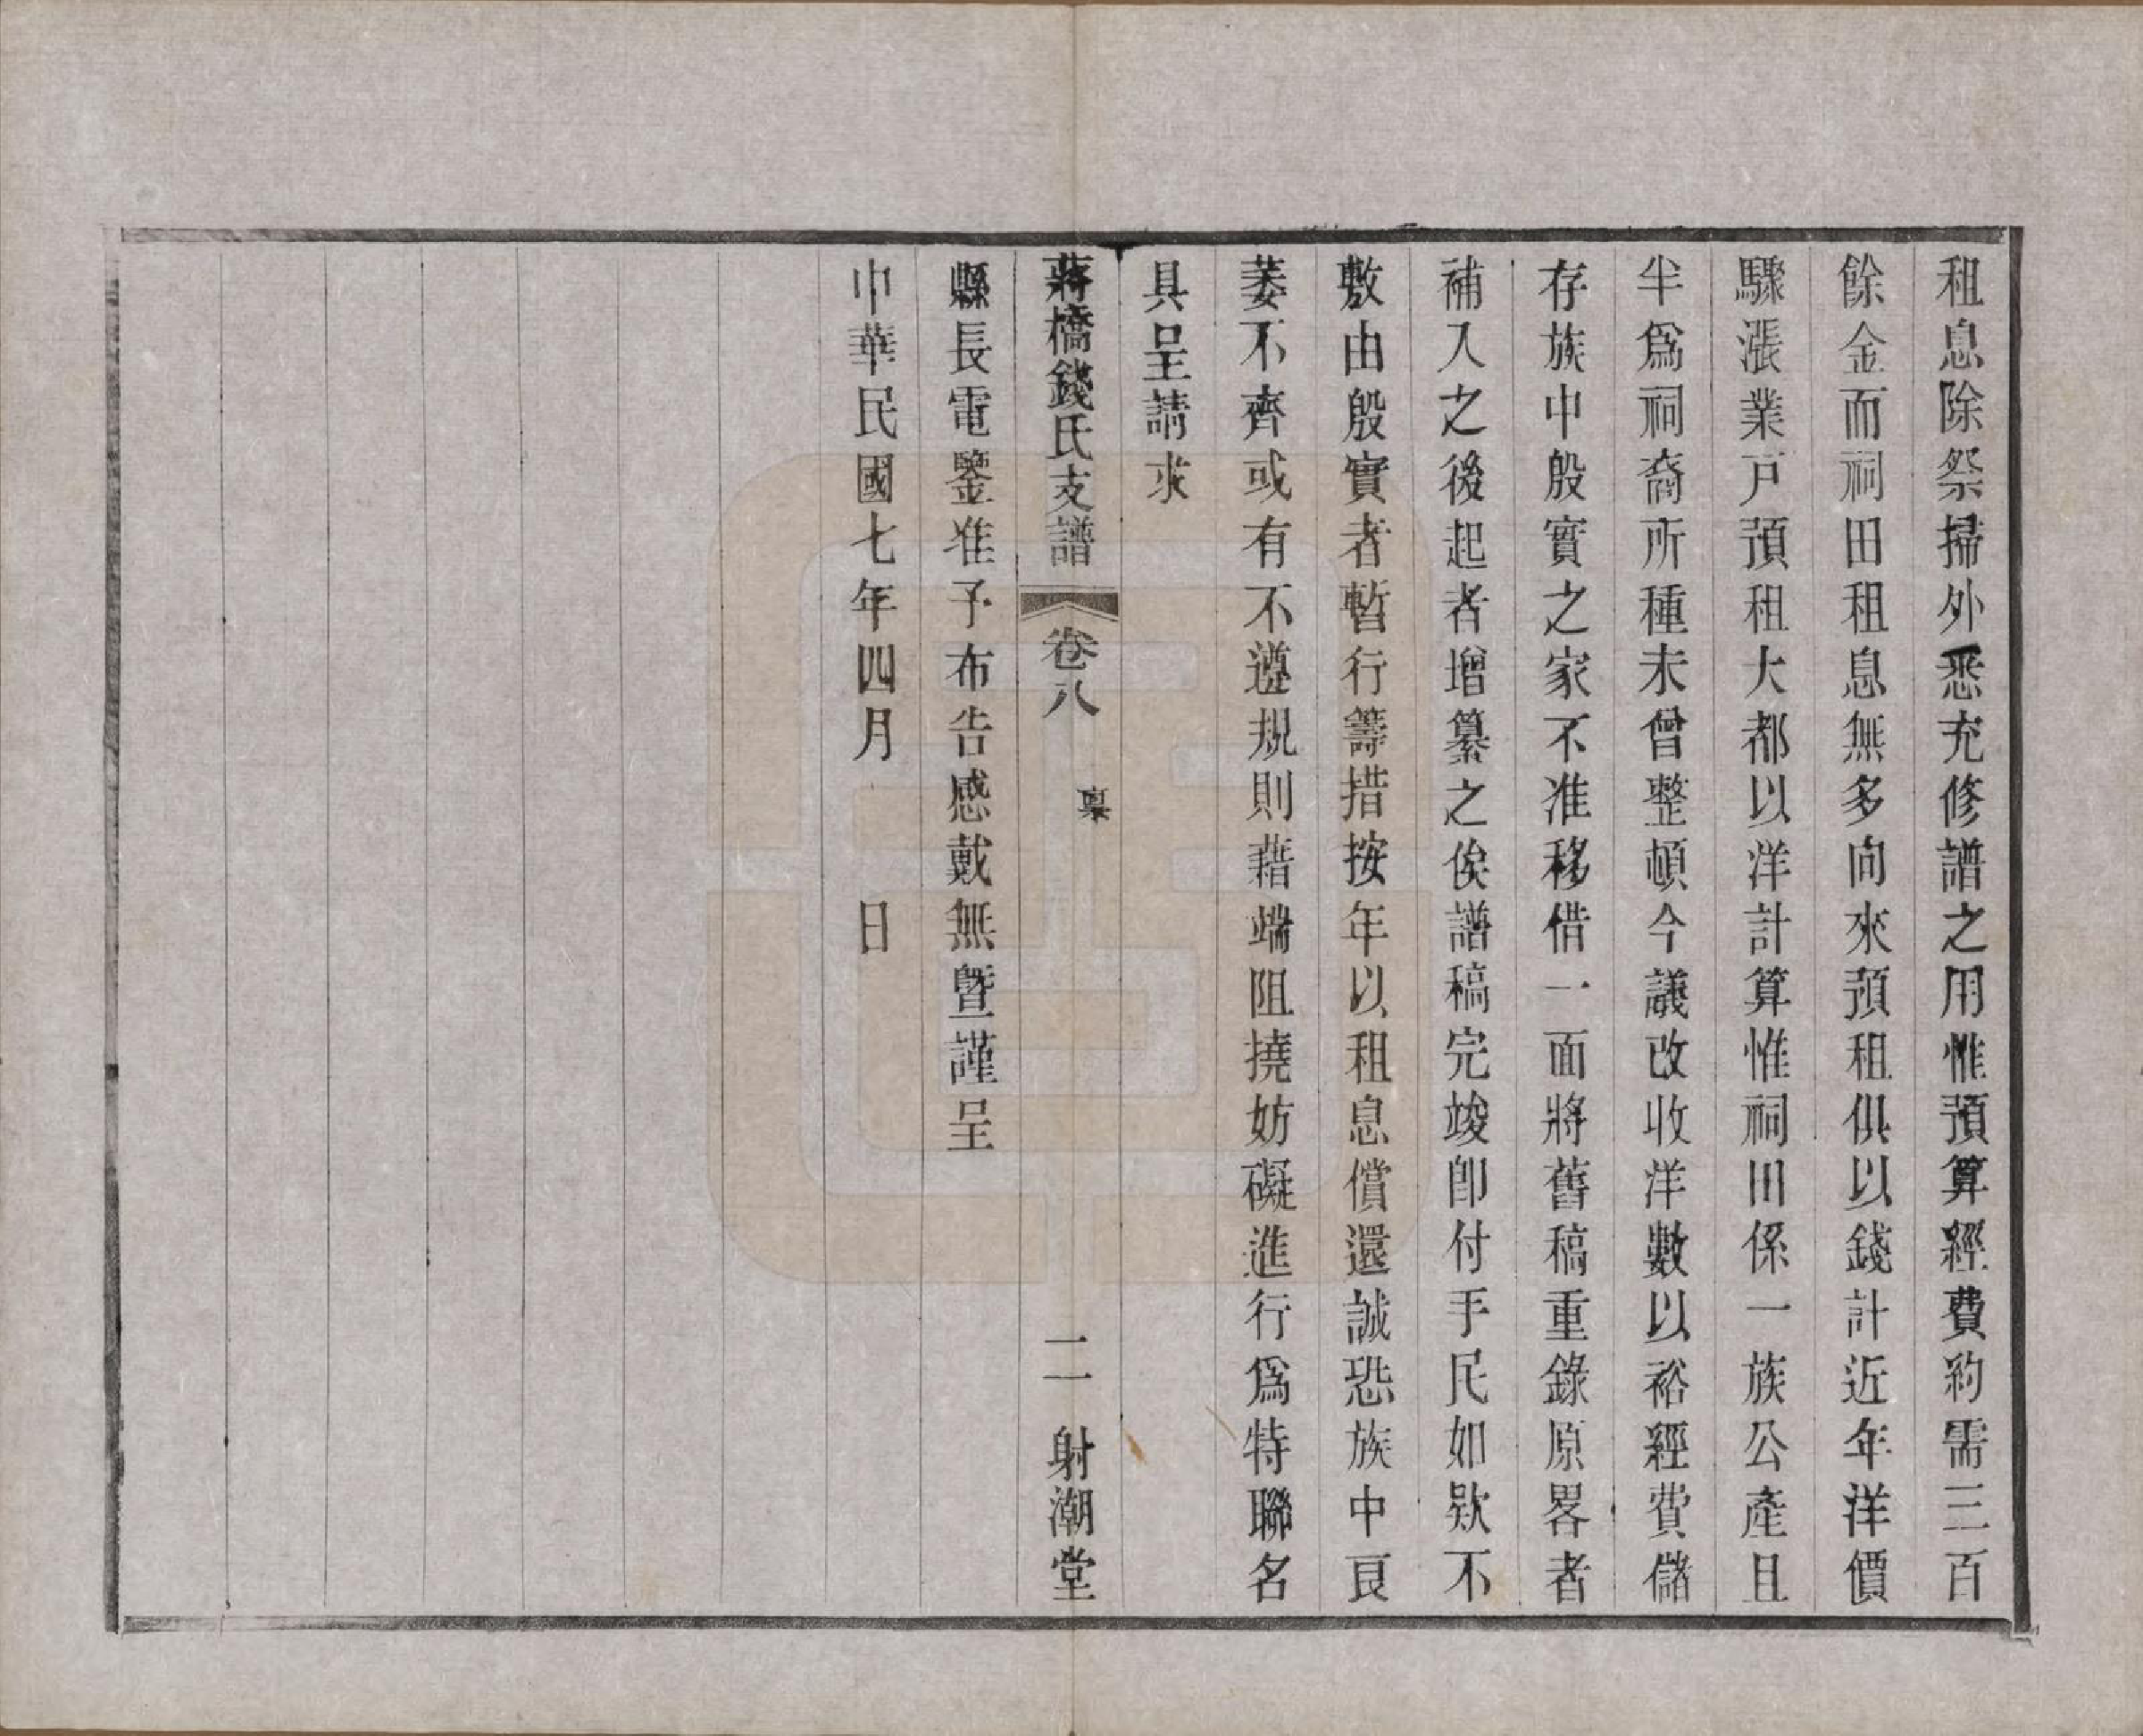 租息除祭掃外悉充修譜之用惟預算經費約需三百
餘金而祠田租息無多向來預租俱以錢計近年洋價
驟漲業戸預租大都以洋計算惟祠田係一族公產且
半爲祠裔所種未曾整頓今議改收洋數以裕經費儲
存族中殷實之家不准移借一面將舊稿重錄原畧者
補入之後起者增纂之俟譜稿完竣卽付手民如欵不
敷由殷實者暫行籌措按年以租息償還誠恐族中良
萎不齊或有不遵規則藉端阻撓妨礙進行爲特聯名
具呈請求
蔣橋錢氏支譜 卷八 稟 二 射潮堂
縣長電鑒准予布告感戴無曁謹呈
中華民國七年四月 日